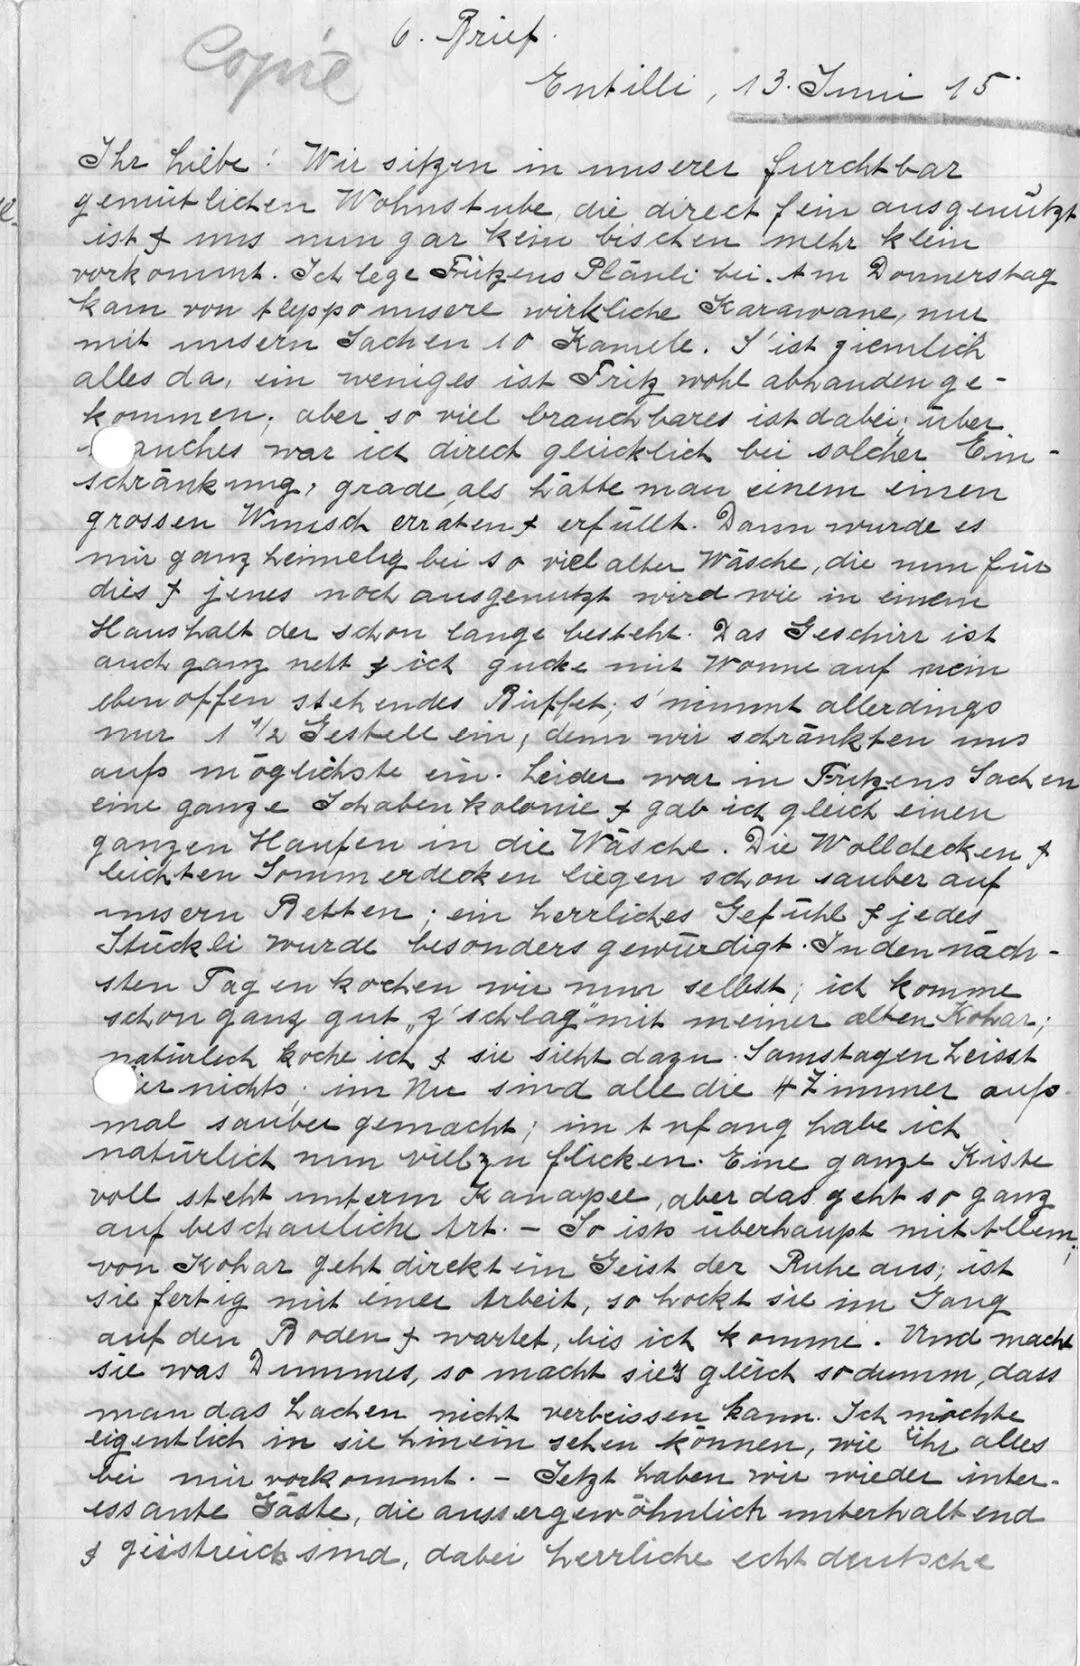 Copie
6. Brief.
Entilli, 13. Juni 15
Ihr Liebe! Wir sitzen in unserer furchtbar
gemütlichen Wohnstube, die direct fein ausgenützt
ist & uns nun gar kein bischen mehr klein
vorkommt. Ich lege Fritzens Plänli bei. Am Donnerstag
kam von Aleppo unsere wirkliche Karawane, nur
mit unsern Sachen 10 Kamele. S'ist ziemlich
alles da, ein weniges ist Fritz wohl abhanden ge-
kommen; aber so viel brauchbares ist dabei; über
manches war ich direct glücklich bei solcher Ein-
schränkung, grade als hätte man einem einen
grossen Wunsch erraten & erfüllt. Dann wurde es
mir ganz heimelig bei so viel alter Wäsche, die nun für
dies & jenes noch ausgenutzt wird wie in einem
Haushalt der schon lange besteht. Das Geschirr ist
auch ganz nett & ich gucke mit Wonne auf mein
eben offen stehendes Büffet; s'nimmt allerdings
nur 1 1/2 Gestell ein, denn wir schränkten uns
aufs möglichste ein. Leider war in Fritzens Sachen
eine ganze Schabenkolonie & gab ich gleich einen
ganzen Haufen in die Wäsche. Die Wolldecken &
leichten Sommerdecken liegen schon sauber auf
unsern Betten; ein herrliches Gefühl & jedes
Stückli wurde besonders gewürdigt. In den näch-
sten Tagen kochen wir nun selbst; ich komme
schon ganz gut „z'schlag" mit meiner alten Kohar;
natürlich koche ich & sie sieht dazu. Samstagen heisst
hier nichts; im Nu sind alle die 4 Zimmer aufs
mal sauber gemacht; im Anfang habe ich
natürlich nun viel zu flicken. Eine ganze Kiste
voll steht unterm Kanapee, aber das geht so ganz
auf beschauliche Art. – So ists überhaupt mit Allem;
von Kohar geht direkt ein Geist der Ruhe aus; ist
sie fertig mit einer Arbeit, so hockt sie im Gang
auf den Boden & wartet, bis ich komme. Und macht
sie was Dummes, so macht sie's gleich so dumm, dass
man das Lachen nicht verbeissen kann. Ich möchte
eigentlich in sie hinein sehen können, wie ihr alles
bei mir vorkommt. – Jetzt haben wir wieder inter-
essante Gäste, die aussergewöhnlich unterhaltend
& geistreich sind, dabei herrliche echt deutsche